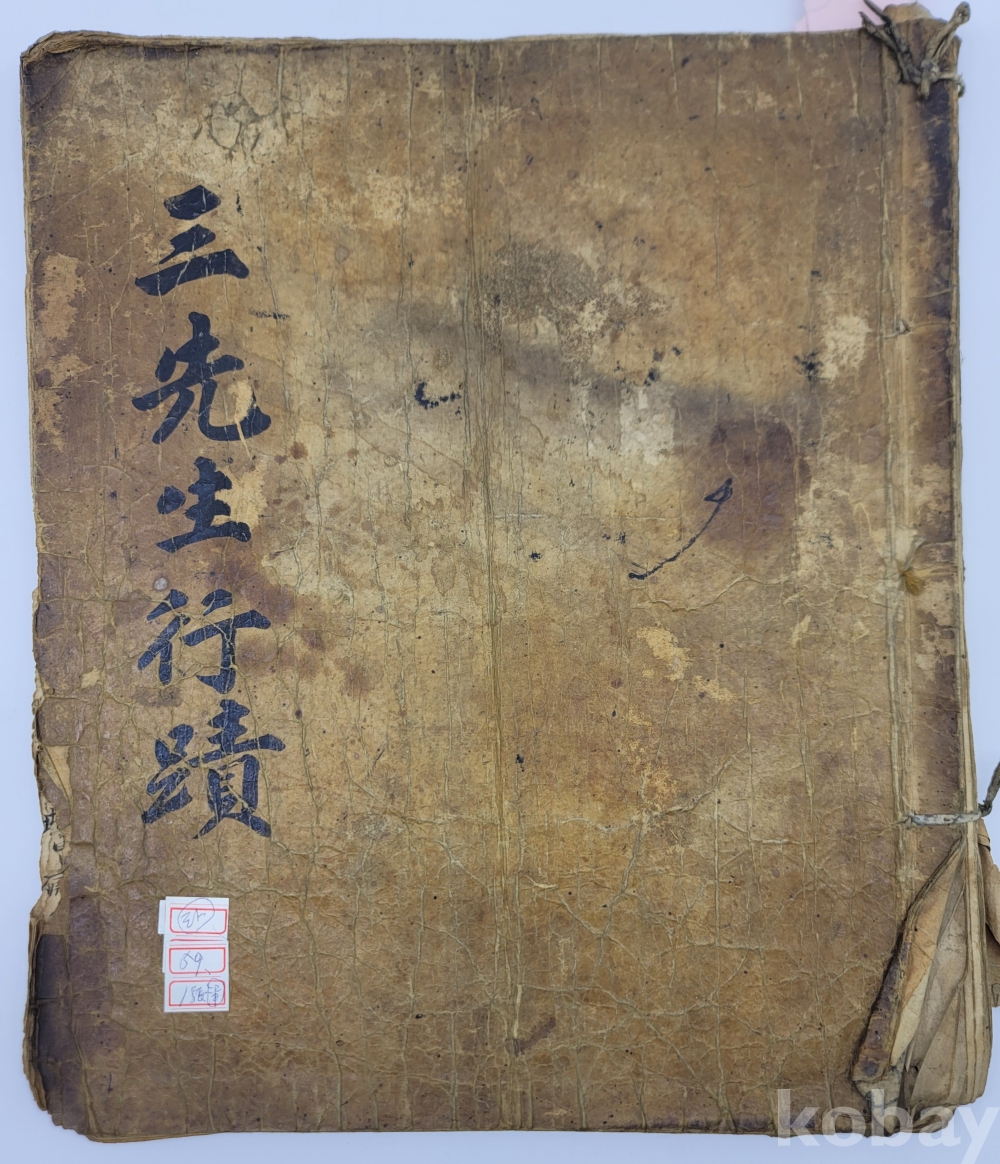 三先生行蹟
59
kobay